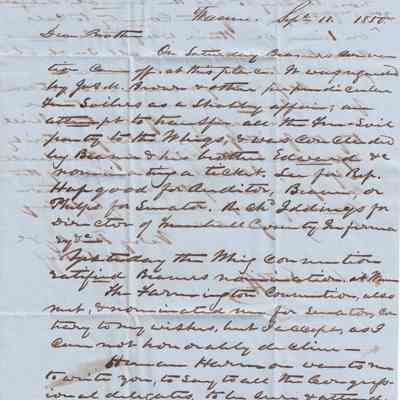 Warren. Sept. 11. 1850
Dear Brother
On Saturday Beaver's Conven
tion Came off. at this place. It was regarded
by Jos. M. Brown & other perpendicular
Free Soilers as a shabby affair; an
attempt to transfer all the Free-Soil
party to the Whigs, & was concluded
by Beaver & his brother Edward &c
nominating a ticket. Lee for Rep.
Hapgood for Auditor, Beaver, or
Phelps for Senator. Rich'd Iddings for
director of Trumbull County Infirma
ry &c
Yesterday the Whig Convention
ratified Beaver's nomination. at
The Farmington Convention, also
met, & nominated me for Senator, con
trary to my wishes, but I accept, as I
can not honorably decline
Harmon wants me
to write you, to say to all the Congress
ional delegates, to be sure & attend